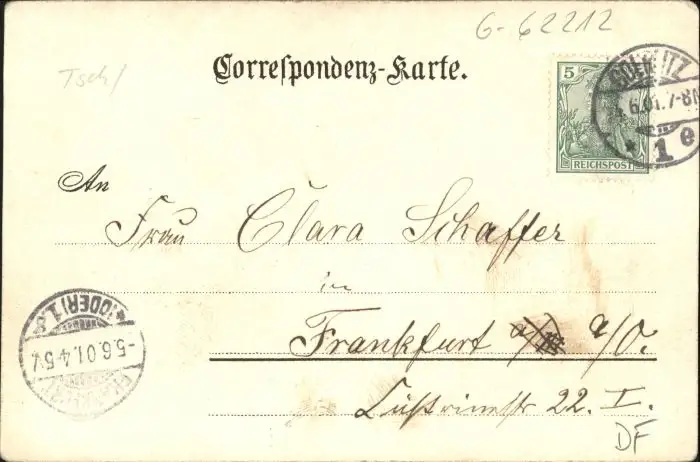 G-62212
Tsch/
Correspondenz-Karte.
5
REICHSPOST
GOERLITZ
6.01.7-8
* 1 e
An
Frau Clara Schaffer
in
Frankfurt a/M a/O.
22. I.
(ODER) 1.
-5.6.01.4-5
FRANKFURT
DF